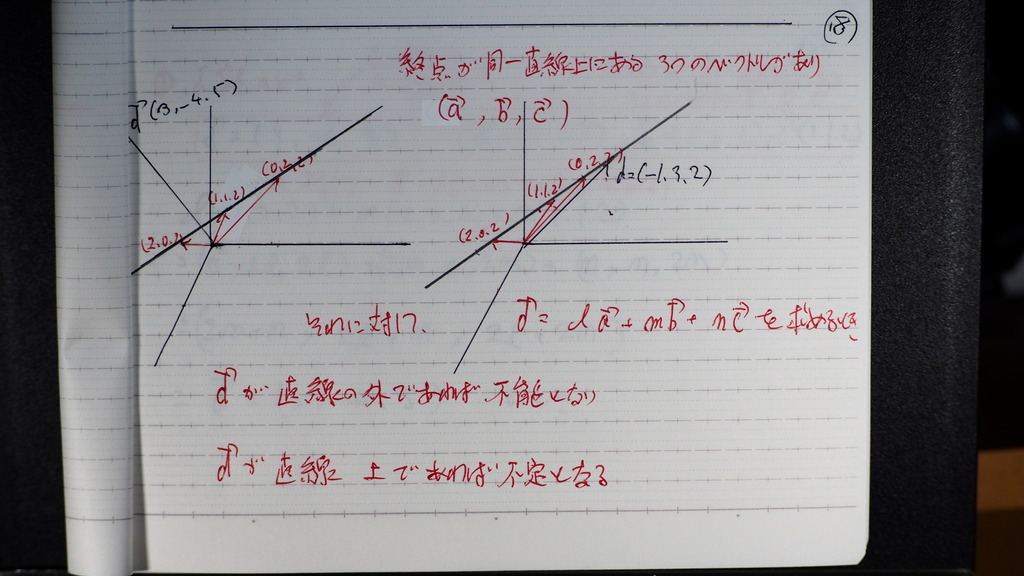 ⑱
終点が同一直線上にある 3つのベクトルがあり
(a⃗, b⃗, c⃗)
d⃗(3,-4,5)
(0,2,2)
(1,1,2)
(2,0,2)
(0,2,2)
d=(-1,3,2)
(1,1,2)
(2,0,2)
それに対して、
d⃗ = la⃗ + mb⃗ + nc⃗ を求めるとき
d⃗が 直線の外であれば 不能となり
d⃗が 直線 上であれば 不定となる